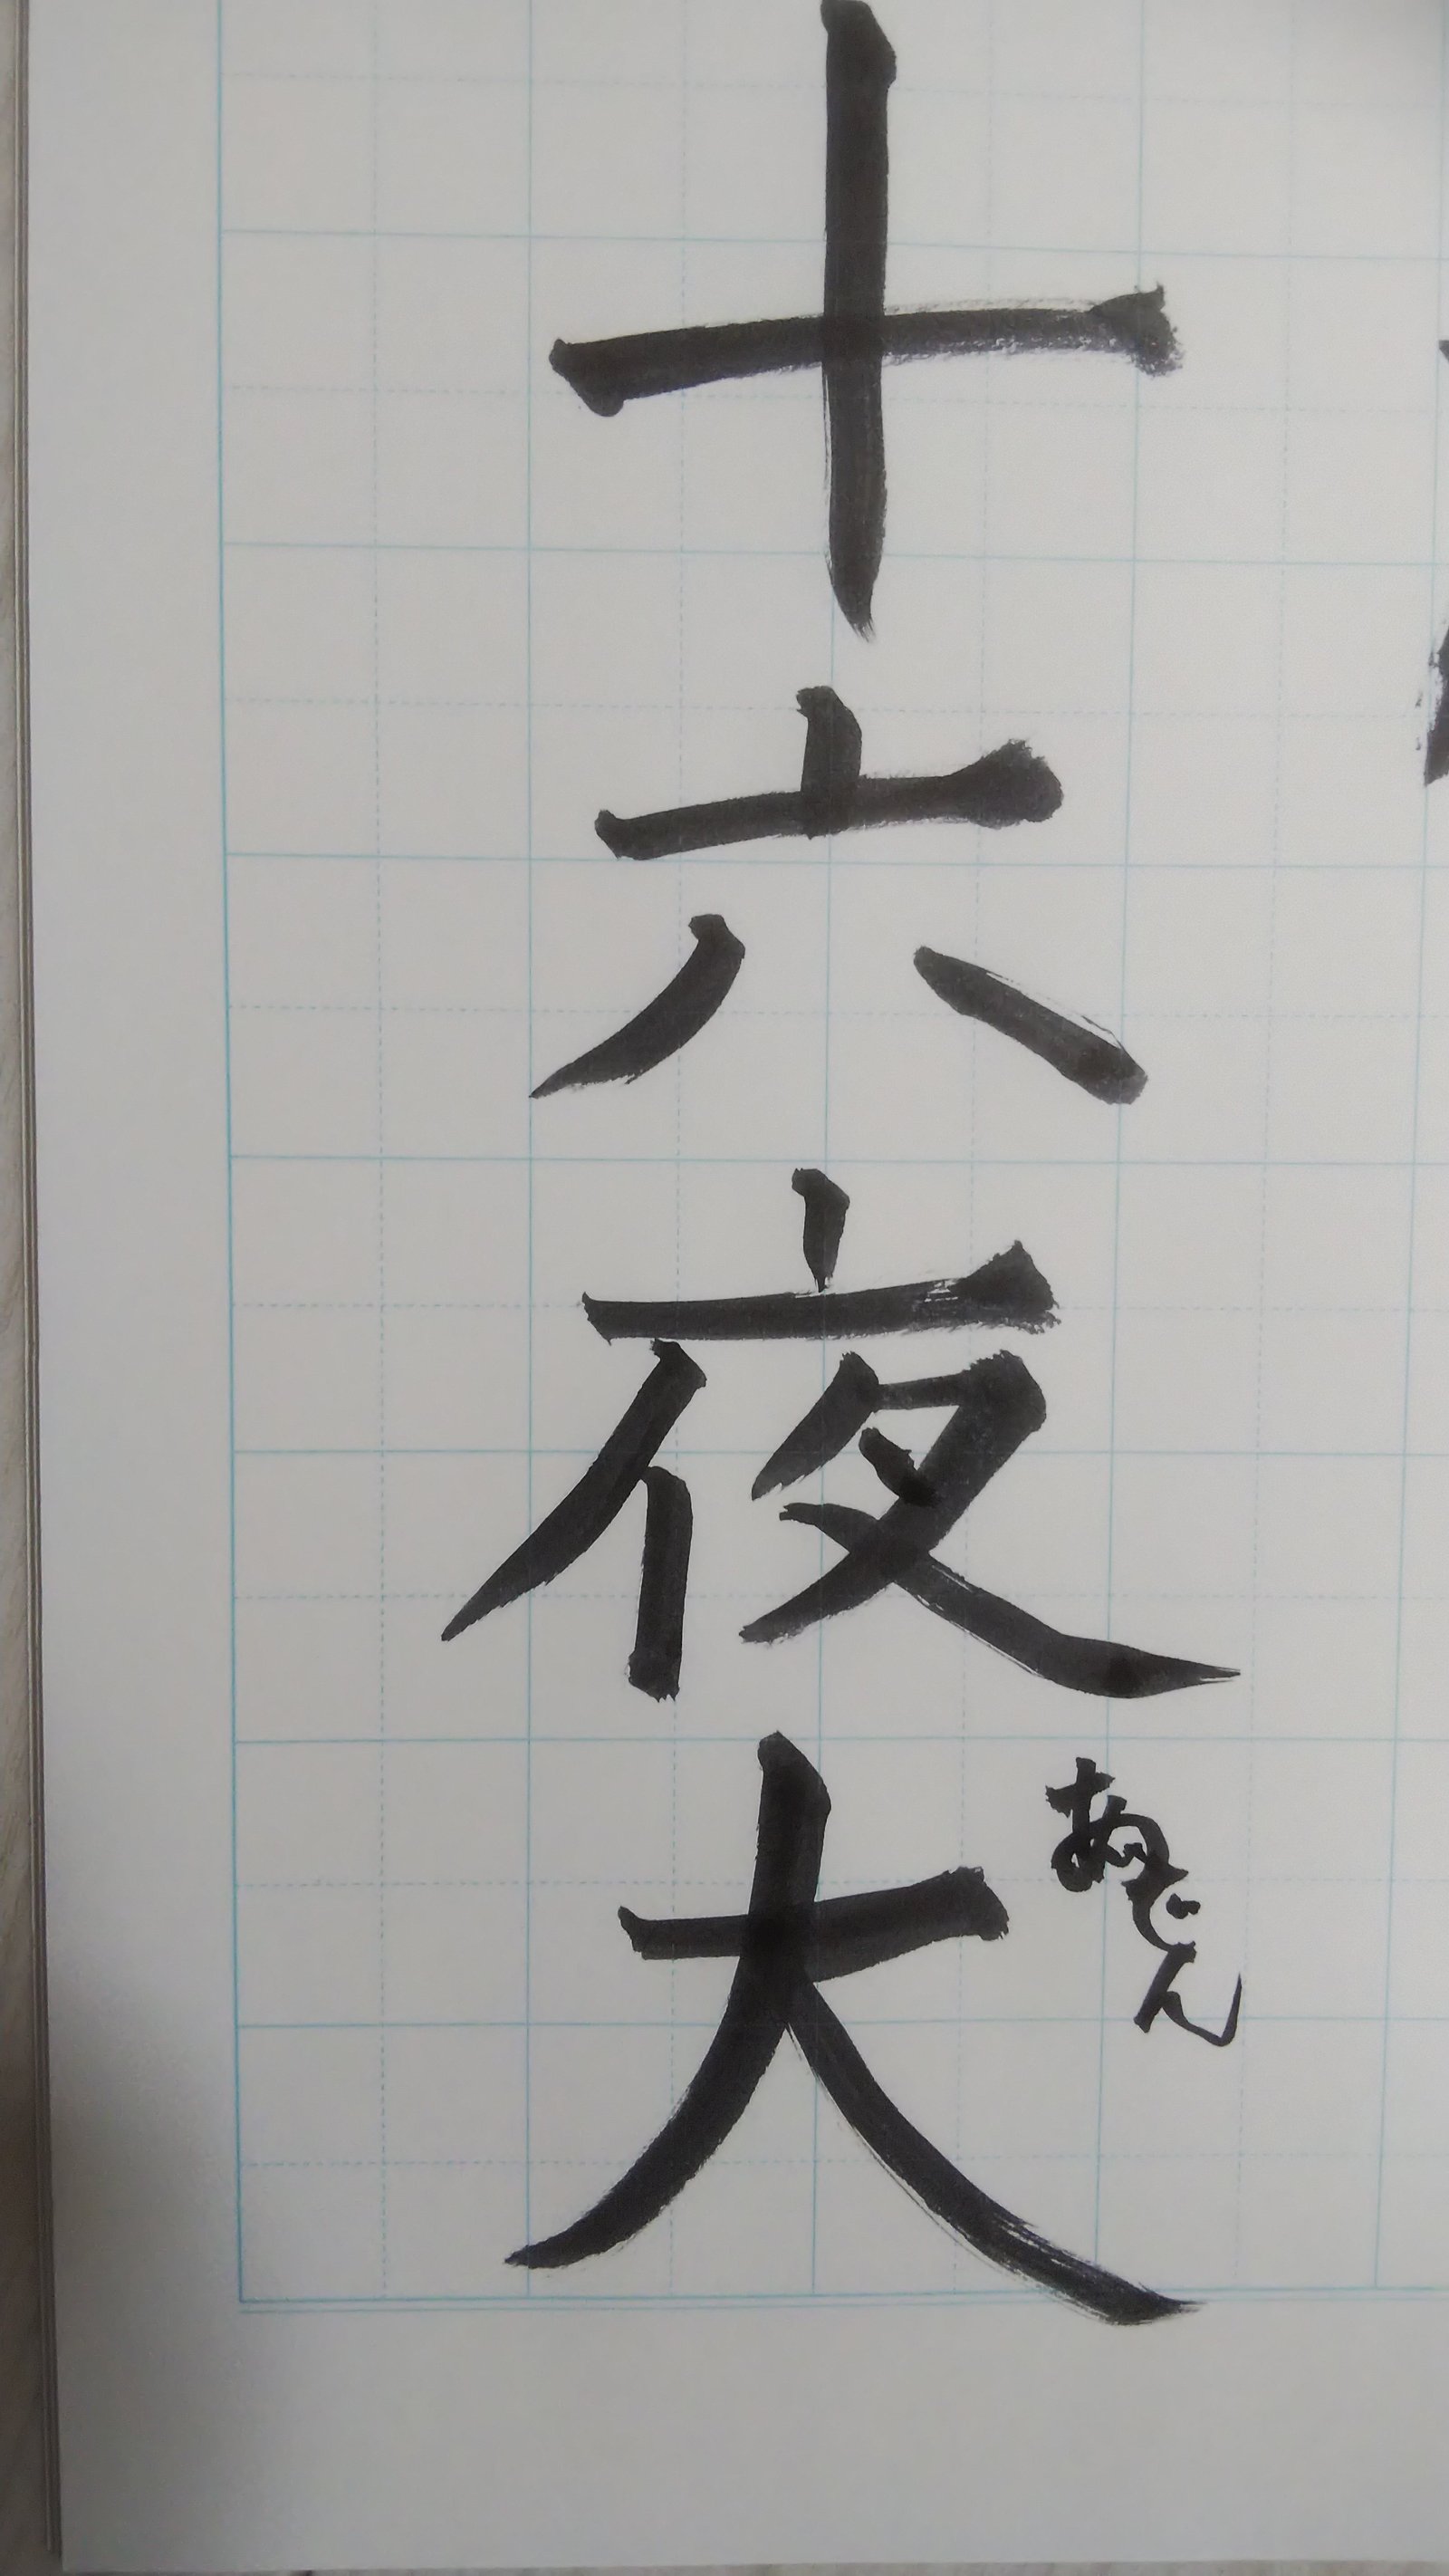 十六夜大
あじん